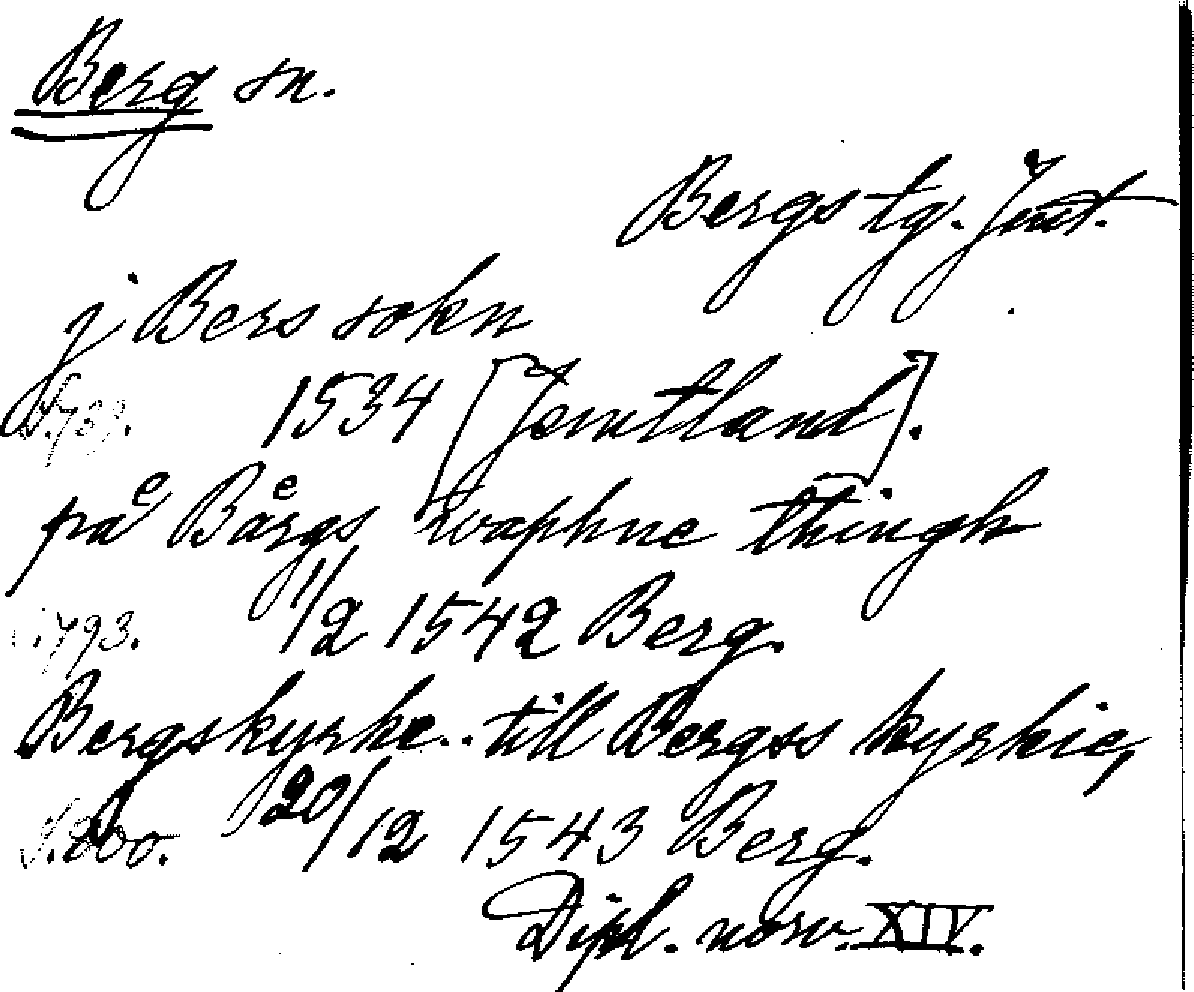 Berg sn.
Bergs tg. Jmt.
j Bers sokn
S. 733. 1534 [Jemtland].
på Bårgs waphne thingh
S. 793. 1/2 1542 Berg.
Bergskyrke.. till Bergss kyrkie,
S. 800. 20/12 1543 Berg.
Dipl. norv. XIV.